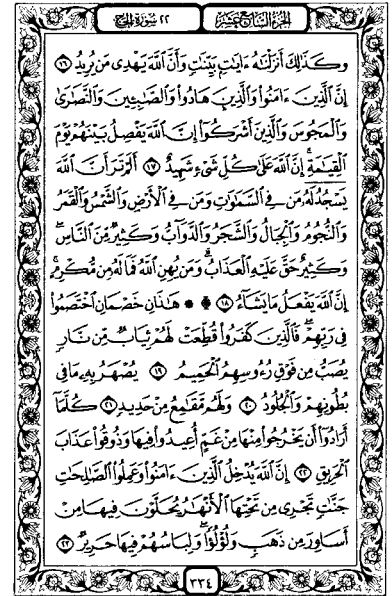 الجزء السابع عشر ٢٢ سورة الحج
وَكَذَٰلِكَ أَنزَلْنَٰهُ ءَايَٰتٍۭ بَيِّنَٰتٍ وَأَنَّ ٱللَّهَ يَهْدِى مَن يُرِيدُ ١٦
إِنَّ ٱلَّذِينَ ءَامَنُوا۟ وَٱلَّذِينَ هَادُوا۟ وَٱلصَّٰبِـِٔينَ وَٱلنَّصَٰرَىٰ
وَٱلْمَجُوسَ وَٱلَّذِينَ أَشْرَكُوٓا۟ إِنَّ ٱللَّهَ يَفْصِلُ بَيْنَهُمْ يَوْمَ
ٱلْقِيَٰمَةِ إِنَّ ٱللَّهَ عَلَىٰ كُلِّ شَىْءٍ شَهِيدٌ ١٧ أَلَمْ تَرَ أَنَّ ٱللَّهَ
يَسْجُدُ لَهُۥ مَن فِى ٱلسَّمَٰوَٰتِ وَمَن فِى ٱلْأَرْضِ وَٱلشَّمْسُ وَٱلْقَمَرُ
وَٱلنُّجُومُ وَٱلْجِبَالُ وَٱلشَّجَرُ وَٱلدَّوَآبُّ وَكَثِيرٌ مِّنَ ٱلنَّاسِ
وَكَثِيرٌ حَقَّ عَلَيْهِ ٱلْعَذَابُ وَمَن يُهِنِ ٱللَّهُ فَمَا لَهُۥ مِن مُّكْرِمٍ
إِنَّ ٱللَّهَ يَفْعَلُ مَا يَشَآءُ ١٨ هَٰذَانِ خَصْمَانِ ٱخْتَصَمُوا۟
فِى رَبِّهِمْ فَٱلَّذِينَ كَفَرُوا۟ قُطِّعَتْ لَهُمْ ثِيَابٌ مِّن نَّارٍ
يُصَبُّ مِن فَوْقِ رُءُوسِهِمُ ٱلْحَمِيمُ ١٩ يُصْهَرُ بِهِۦ مَا فِى
بُطُونِهِمْ وَٱلْجُلُودُ ٢٠ وَلَهُم مَّقَٰمِعُ مِنْ حَدِيدٍ ٢١ كُلَّمَآ
أَرَادُوٓا۟ أَن يَخْرُجُوا۟ مِنْهَا مِنْ غَمٍّ أُعِيدُوا۟ فِيهَا وَذُوقُوا۟ عَذَابَ
ٱلْحَرِيقِ ٢٢ إِنَّ ٱللَّهَ يُدْخِلُ ٱلَّذِينَ ءَامَنُوا۟ وَعَمِلُوا۟ ٱلصَّٰلِحَٰتِ
جَنَّٰتٍ تَجْرِى مِن تَحْتِهَا ٱلْأَنْهَٰرُ يُحَلَّوْنَ فِيهَا مِنْ
أَسَاوِرَ مِن ذَهَبٍ وَلُؤْلُؤًا وَلِبَاسُهُمْ فِيهَا حَرِيرٌ ٢٣
٣٣٤